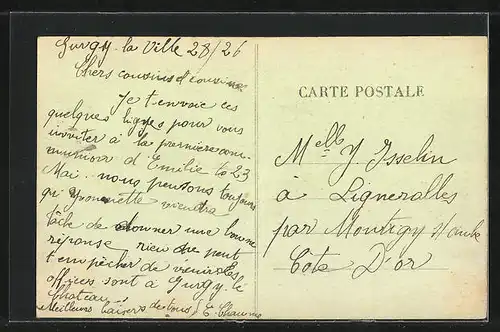 Gurgy la Ville 28/26
Chers cousins et cousines
Je t'envoie ces
quelques lignes pour vous
inviter à la première com-
munion d'Emilie le 23
Mai. nous pensons toujours
qu'Yvonnette viendra
tâche de donner une bonne
réponse, rien ne peut
t'empêcher de venir les
offices sont à Gurgy le
Chateau
Meilleurs baisers de tous E.
CARTE POSTALE
Melle Y. Isselin
à Lignerolles
par Montigy s/ aube
Cote D'or